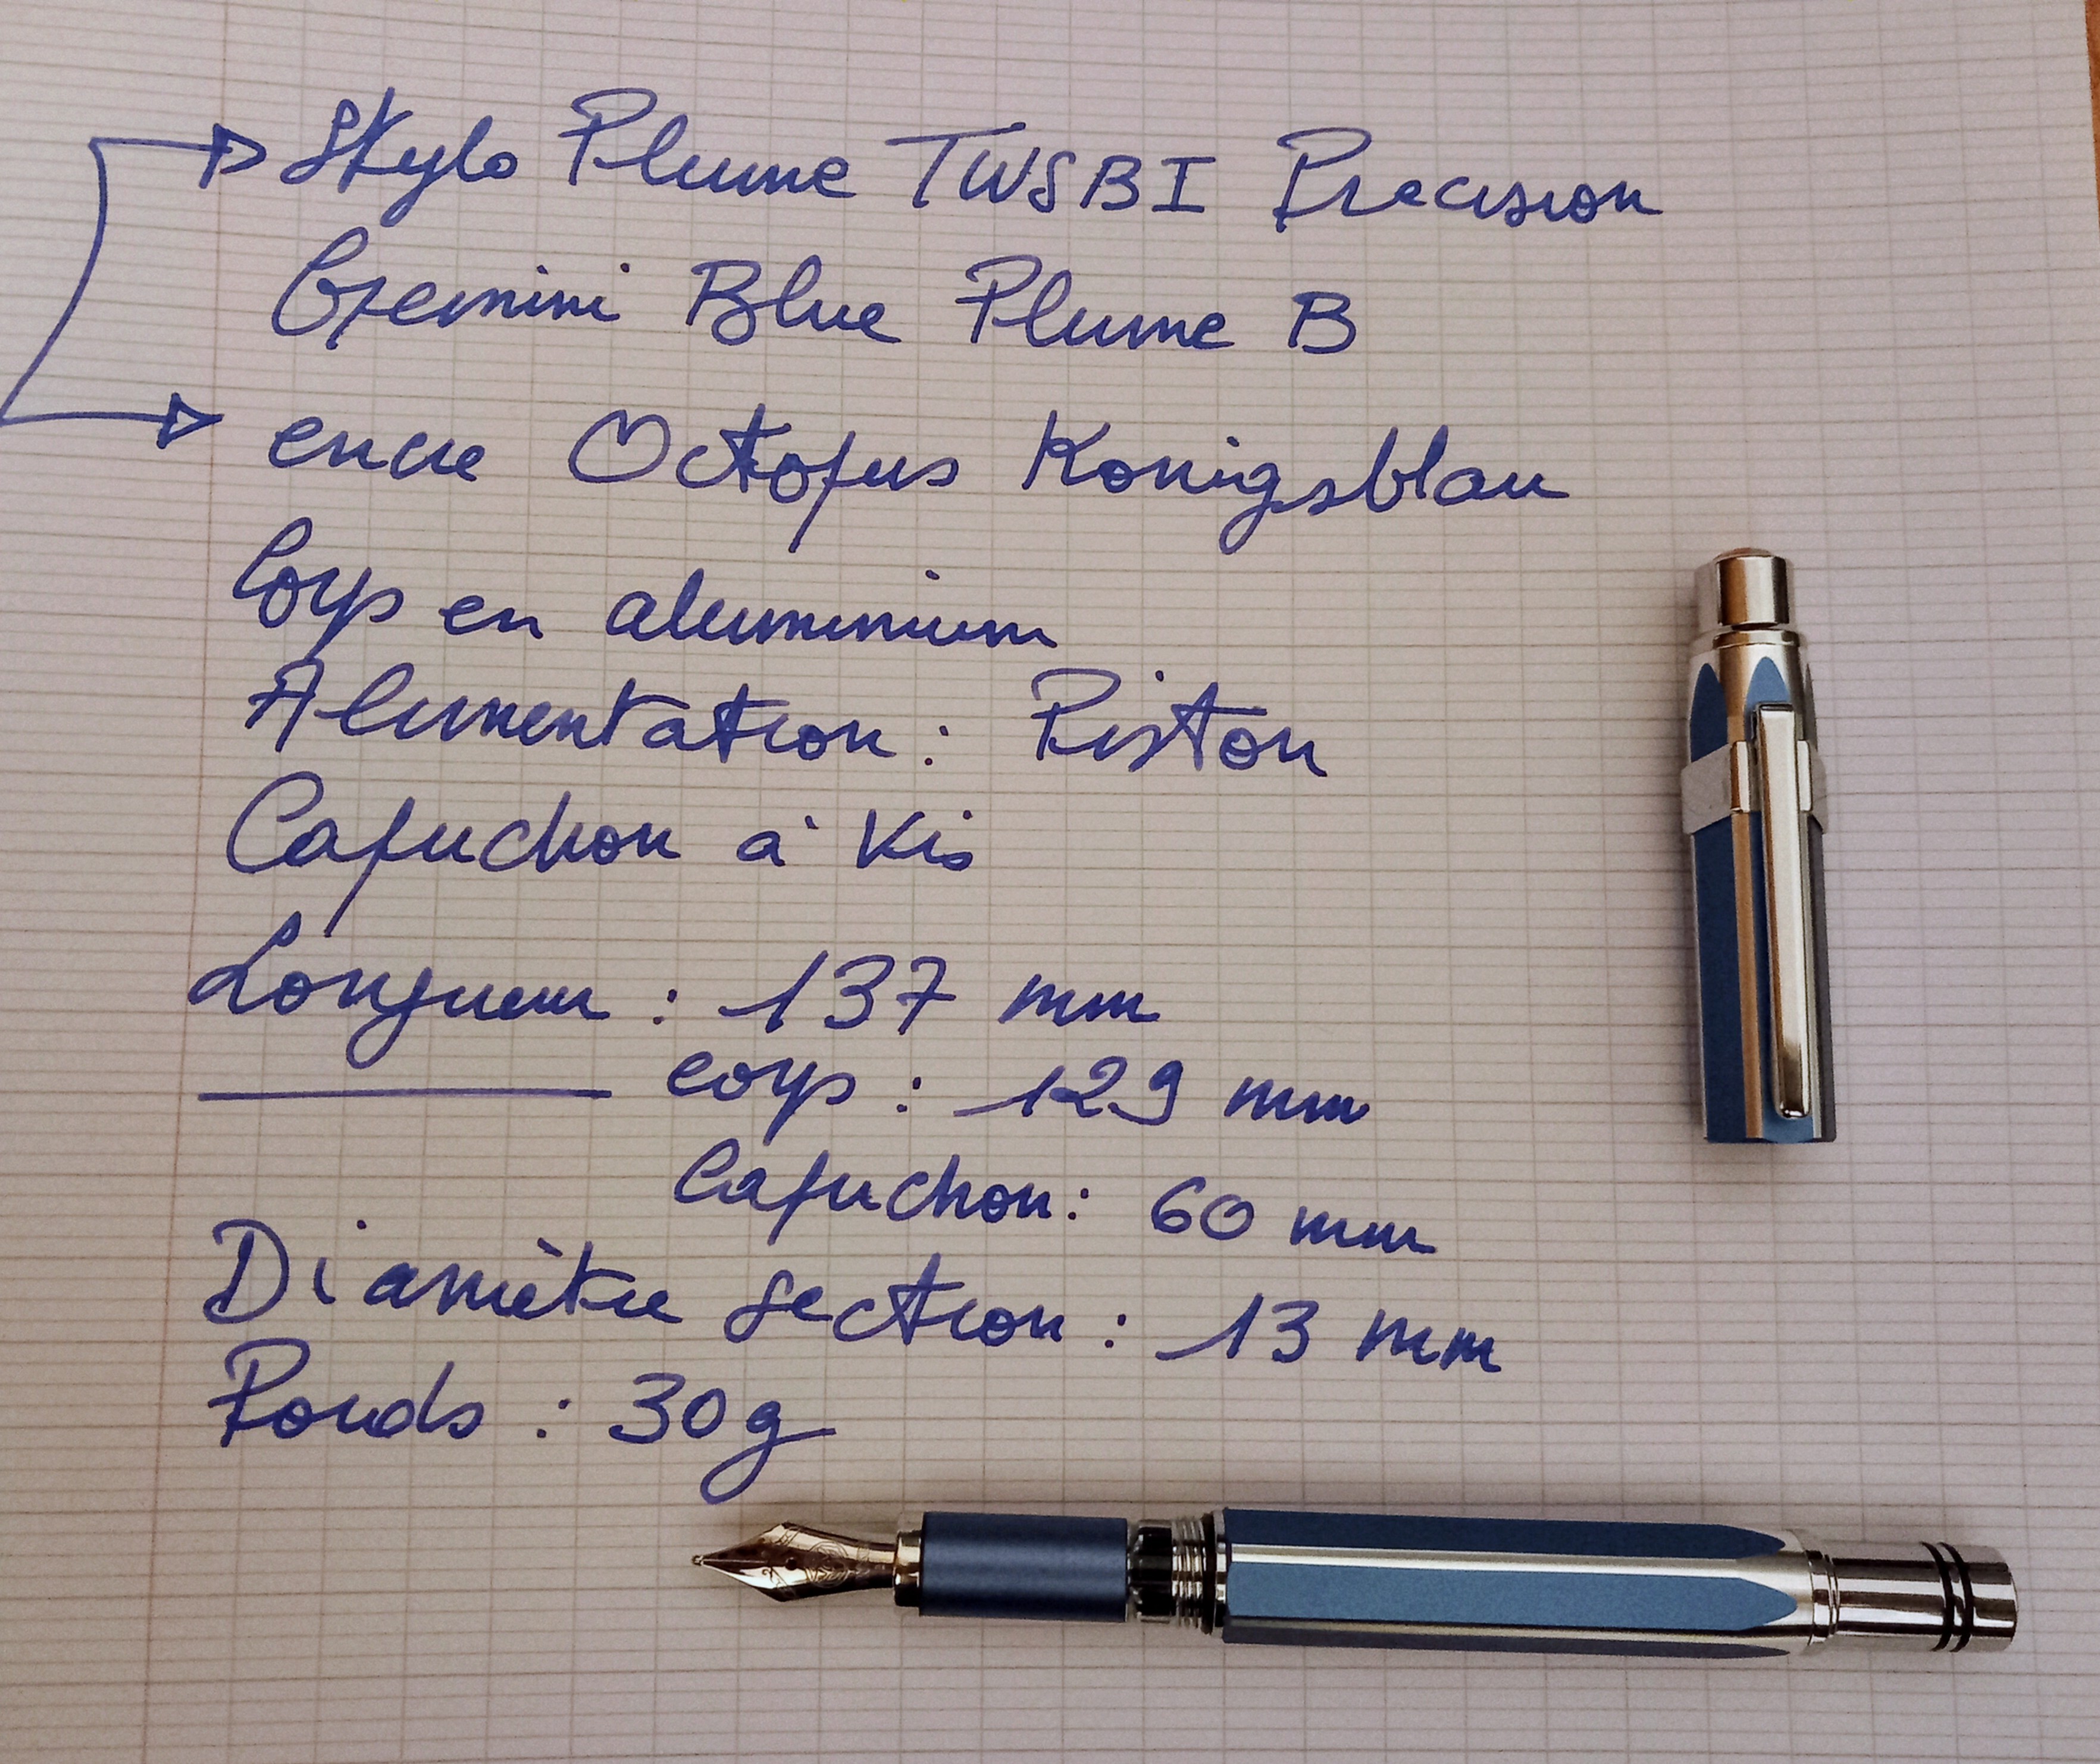 Stylo Plume TWSBI Precision
Gemini Blue Plume B
encre Octopus Konigsblau
Corps en aluminium
Alimentation : Piston
Capuchon à Vis
Longueur : 137 mm
corps : 129 mm
Capuchon : 60 mm
Diamètre section : 13 mm
Poids : 30g